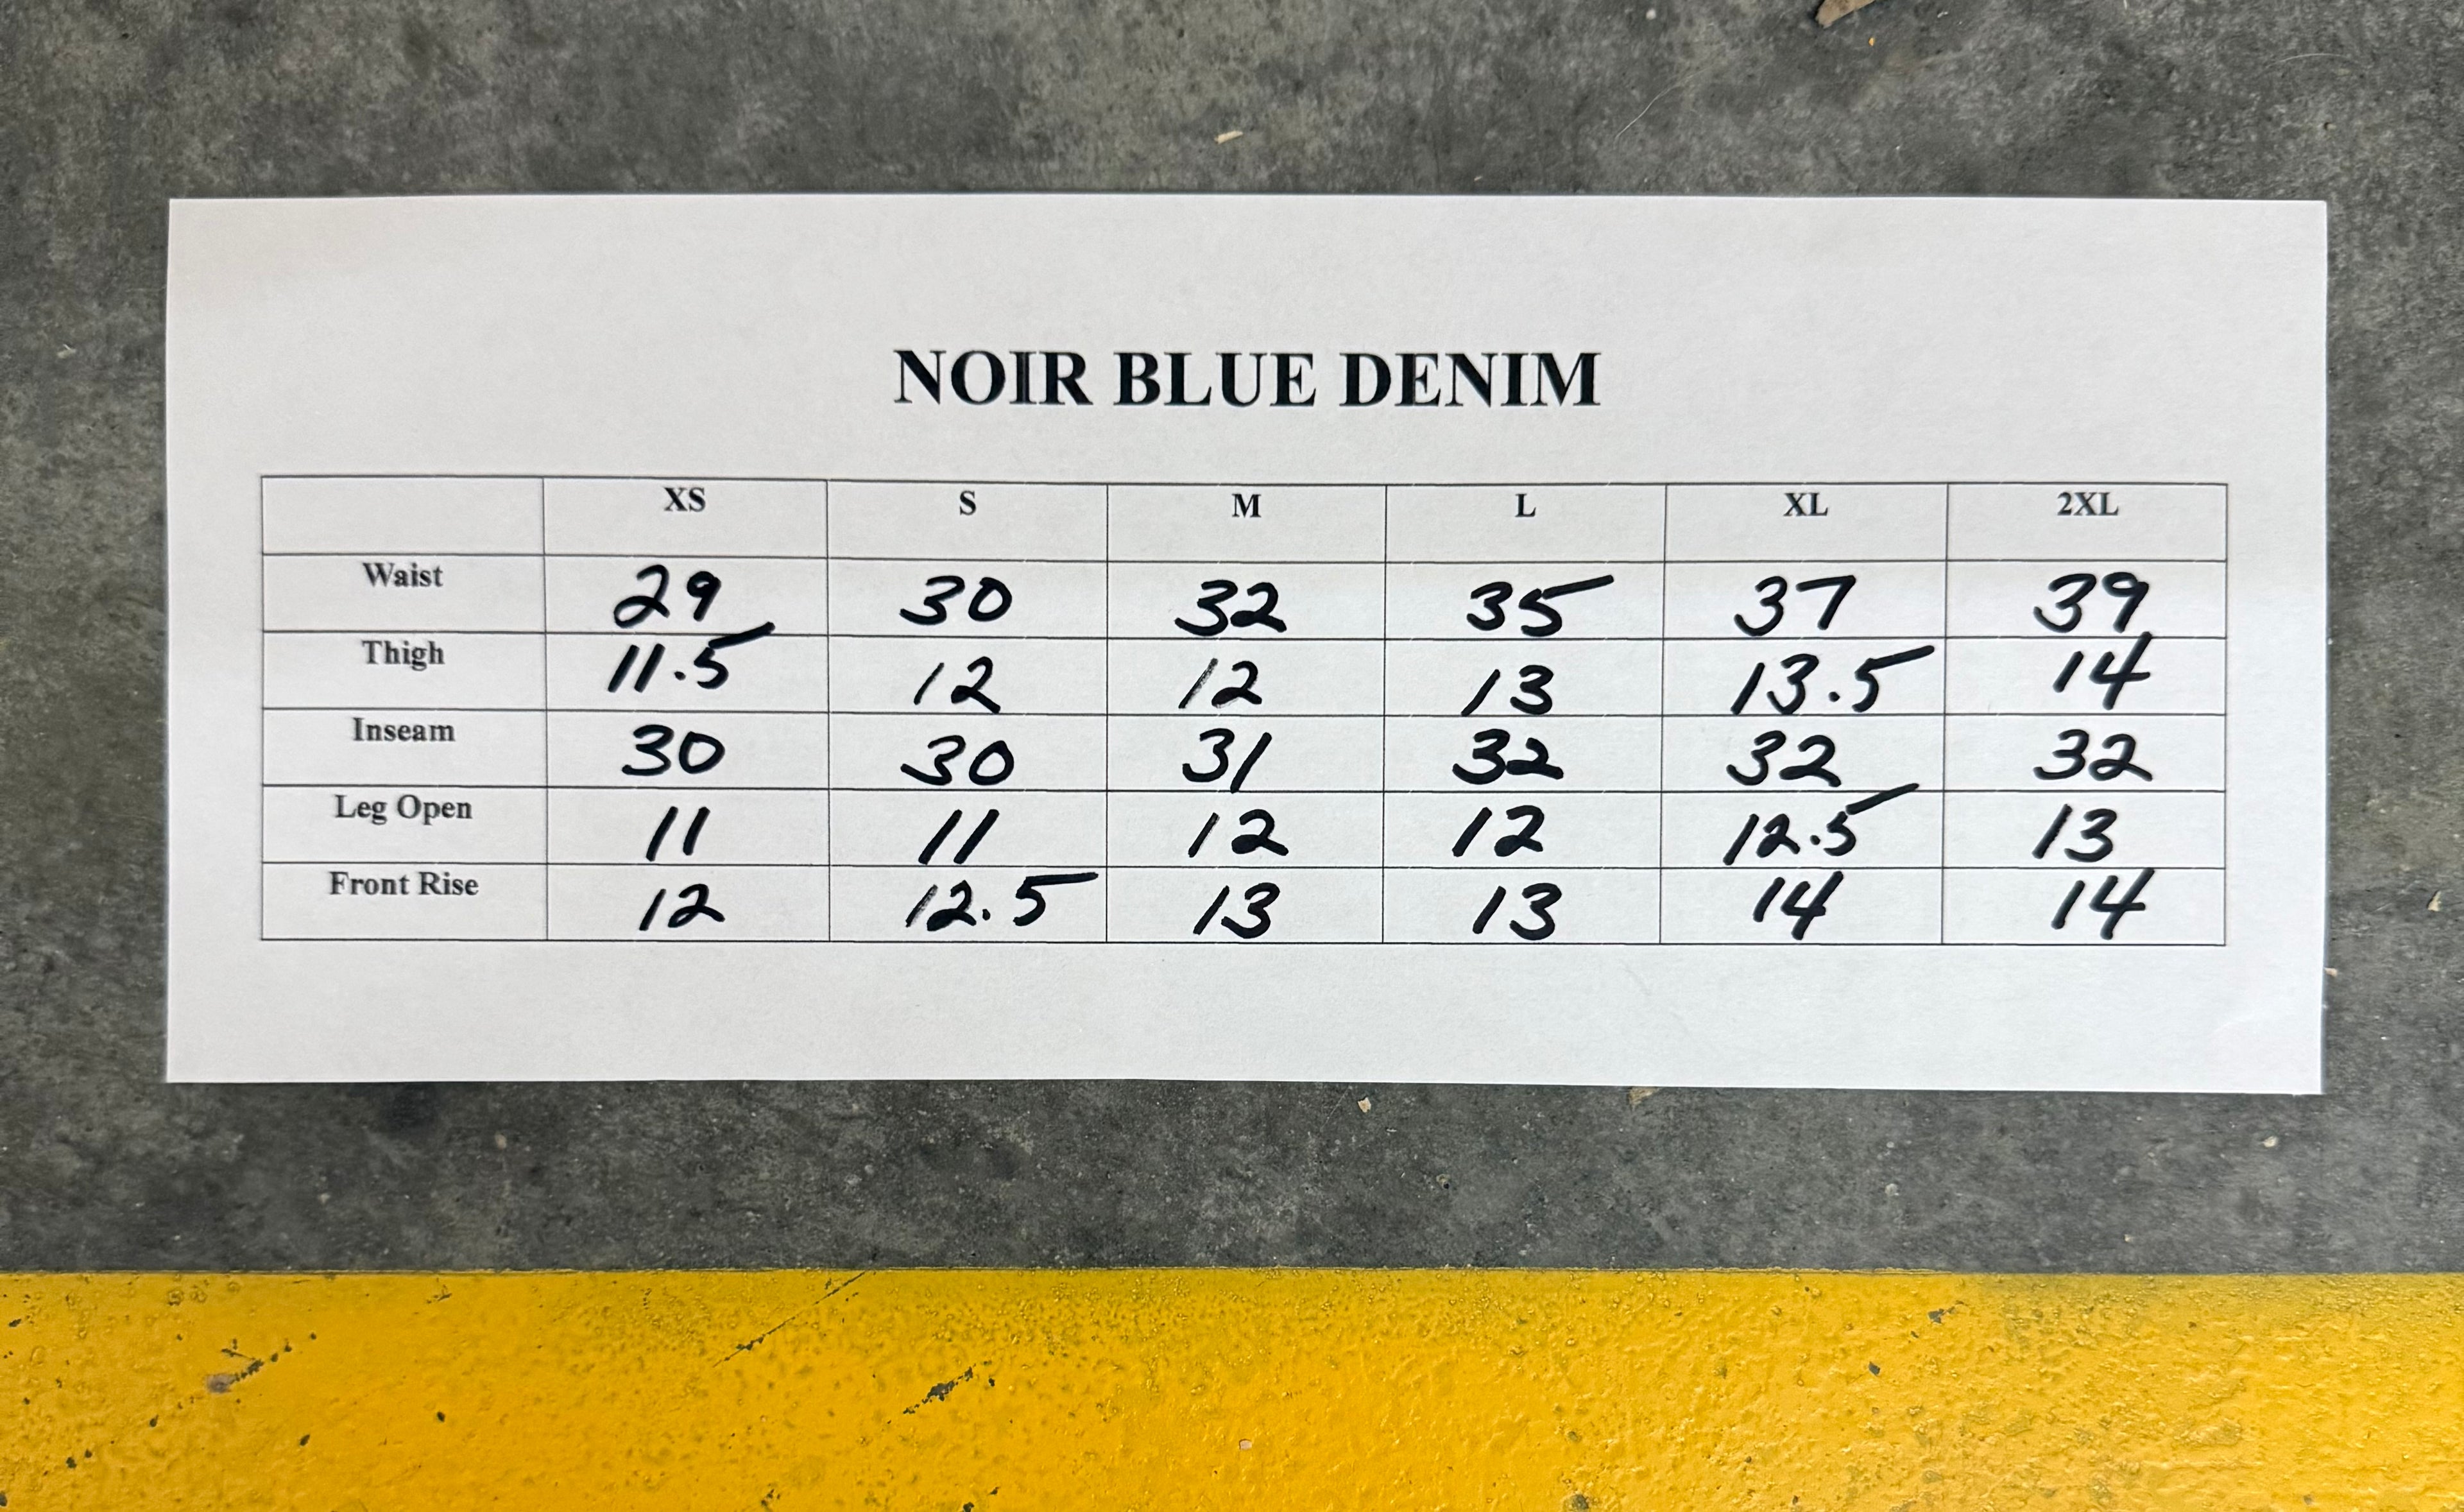 NOIR BLUE DENIM
XS S M L XL 2XL
Waist 29 30 32 35 37 39
Thigh 11.5 12 12 13 13.5 14
Inseam 30 30 31 32 32 32
Leg Open 11 11 12 12 12.5 13
Front Rise 12 12.5 13 13 14 14